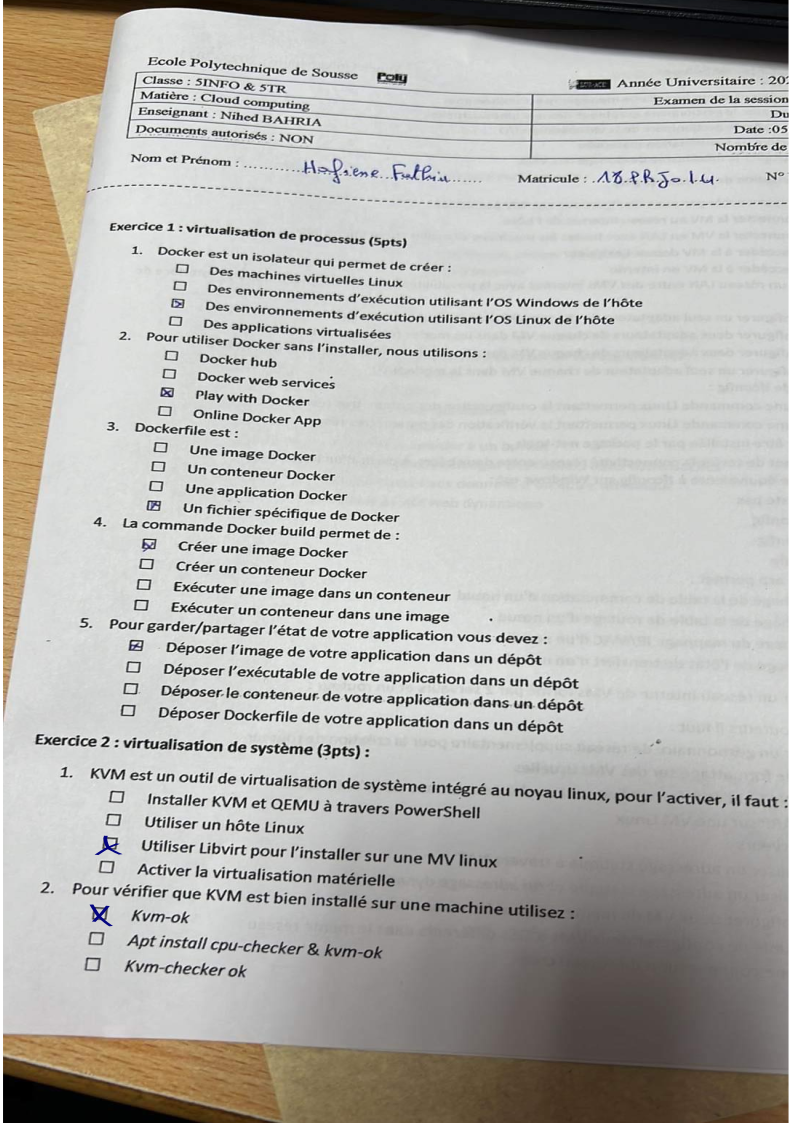 Ecole Polytechnique de Sousse Poly
Année Universitaire : 202
Classe : 5INFO & 5TR
Examen de la session
Matière : Cloud computing
Du
Enseignant : Nihed BAHRIA
Date :05
Documents autorisés : NON
Nombre de
Nom et Prénom :
Matricule :
N°
Exercice 1 : virtualisation de processus (5pts)
1. Docker est un isolateur qui permet de créer :
Des machines virtuelles Linux
Des environnements d'exécution utilisant l'OS Windows de l'hôte
Des environnements d'exécution utilisant l'OS Linux de l'hôte
Des applications virtualisées
2. Pour utiliser Docker sans l'installer, nous utilisons :
Docker hub
Docker web services
Play with Docker
Online Docker App
3. Dockerfile est :
Une image Docker
Un conteneur Docker
Une application Docker
Un fichier spécifique de Docker
4. La commande Docker build permet de :
Créer une image Docker
Créer un conteneur Docker
Exécuter une image dans un conteneur
Exécuter un conteneur dans une image
5. Pour garder/partager l'état de votre application vous devez :
Déposer l'image de votre application dans un dépôt
Déposer l'exécutable de votre application dans un dépôt
Déposer le conteneur de votre application dans un dépôt
Déposer Dockerfile de votre application dans un dépôt
Exercice 2 : virtualisation de système (3pts) :
1. KVM est un outil de virtualisation de système intégré au noyau linux, pour l'activer, il faut :
Installer KVM et QEMU à travers PowerShell
Utiliser un hôte Linux
Utiliser Libvirt pour l'installer sur une MV linux
Activer la virtualisation matérielle
2. Pour vérifier que KVM est bien installé sur une machine utilisez :
Kvm-ok
Apt install cpu-checker & kvm-ok
Kvm-checker ok